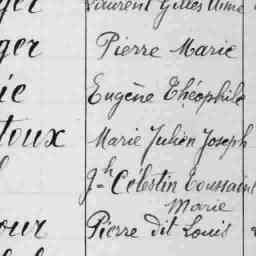 ger Laurent Gilles Aimé
ger Pierre Marie
ie Eugène Théophile
toux Marie Julien Joseph
Jh Célestin Toussaint
Marie
our Pierre dit Louis